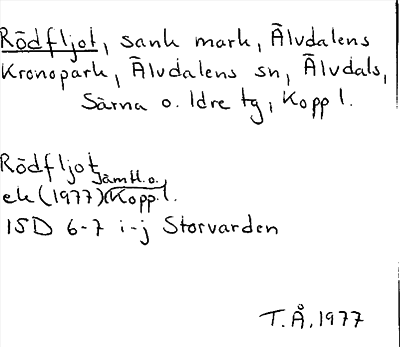 Rödfljot, sank mark, Älvdalens
Kronopark, Älvdalens sn, Älvdals,
Särna o. Idre tg, Kopp l.
Rödfljot
Jämtl. o.
ek (1977) Kopp. l.
15D 6-7 i-j Storvarden
T.Å. 1977